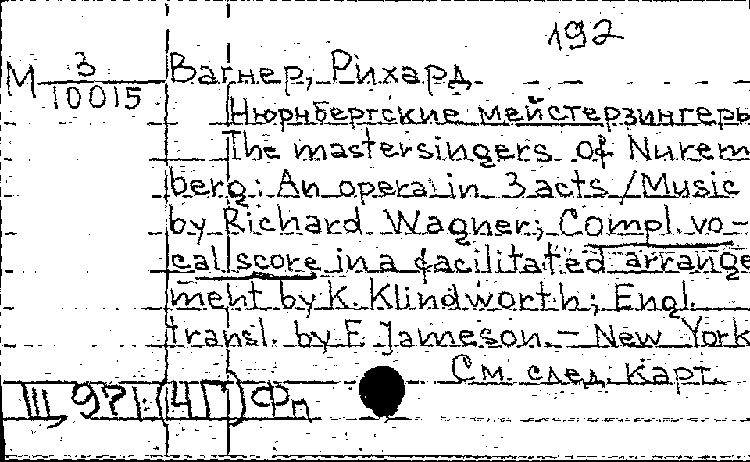 192
М 3/10015 Вагнер, Рихард
Нюрнбергские мейстерзингеры
The mastersingers of Nurem
berg: An opera in 3 acts / Music
by Richard Wagner; Compl. vo-
cal score in a facilitated arrange
ment by K. Klindworth; Engl.
transl. by F. Jameson. — New York
См. след. карт.
III, 971 (4Г) Фп